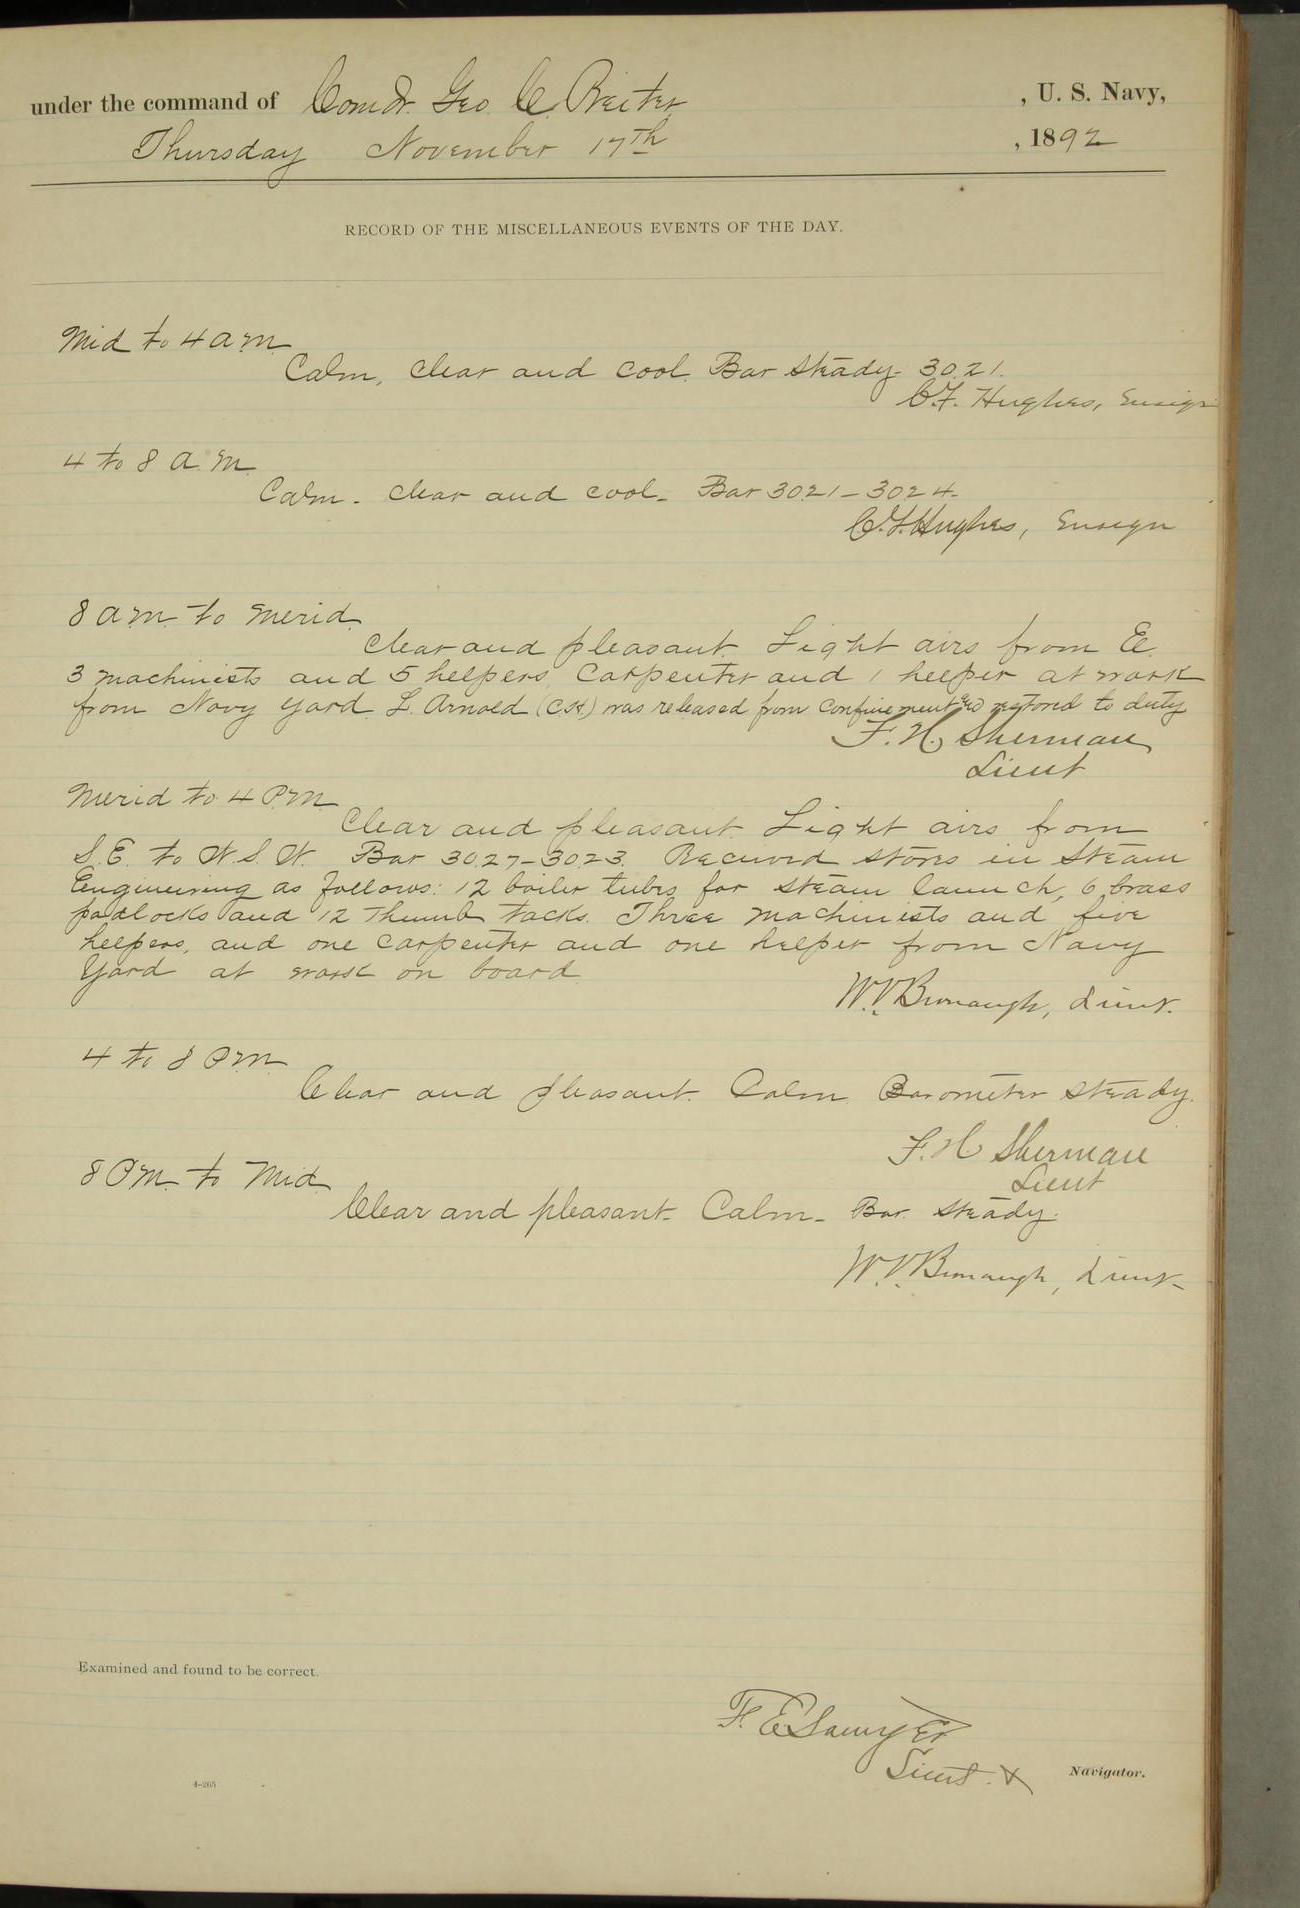 under the command of Comdr. Geo. C. Reiter, U. S. Navy,
Thursday November 17th, 1892
RECORD OF THE MISCELLANEOUS EVENTS OF THE DAY.
Mid to 4 a.m.
Calm, clear and cool. Bar steady 30.21.
C.F. Hughes, Ensign
4 to 8 a.m.
Calm - clear and cool - Bar 30.21 - 30.24 -
C.F. Hughes, Ensign
8 a.m. to Merid.
Clear and pleasant. Light airs from E.
3 machinists and 5 helpers, Carpenter and 1 helper at work
from Navy Yard. L. Arnold (C.H.) was released from confinement and restored to duty
F. H. Sherman
Lieut
Merid to 4 P.M.
Clear and pleasant. Light airs from
S.E. to W.S.W. Bar 30.27-30.23. Received stores in Steam
Engineering as follows: 12 boiler tubes for steam launch, 6 brass
padlocks and 12 Thumb tacks. Three machinists and five
helpers, and one carpenter and one helper from Navy
Yard at work on board.
W.V. Bronaugh, Lieut.
4 to 8 P.M.
Clear and pleasant. Calm. Barometer steady.
F. H. Sherman
Lieut
8 P.M. to Mid.
Clear and pleasant - Calm - Bar. steady.
W.V. Bronaugh, Lieut -
Examined and found to be correct.
F. E. Sawyer
Lieut. & Navigator.
4-265